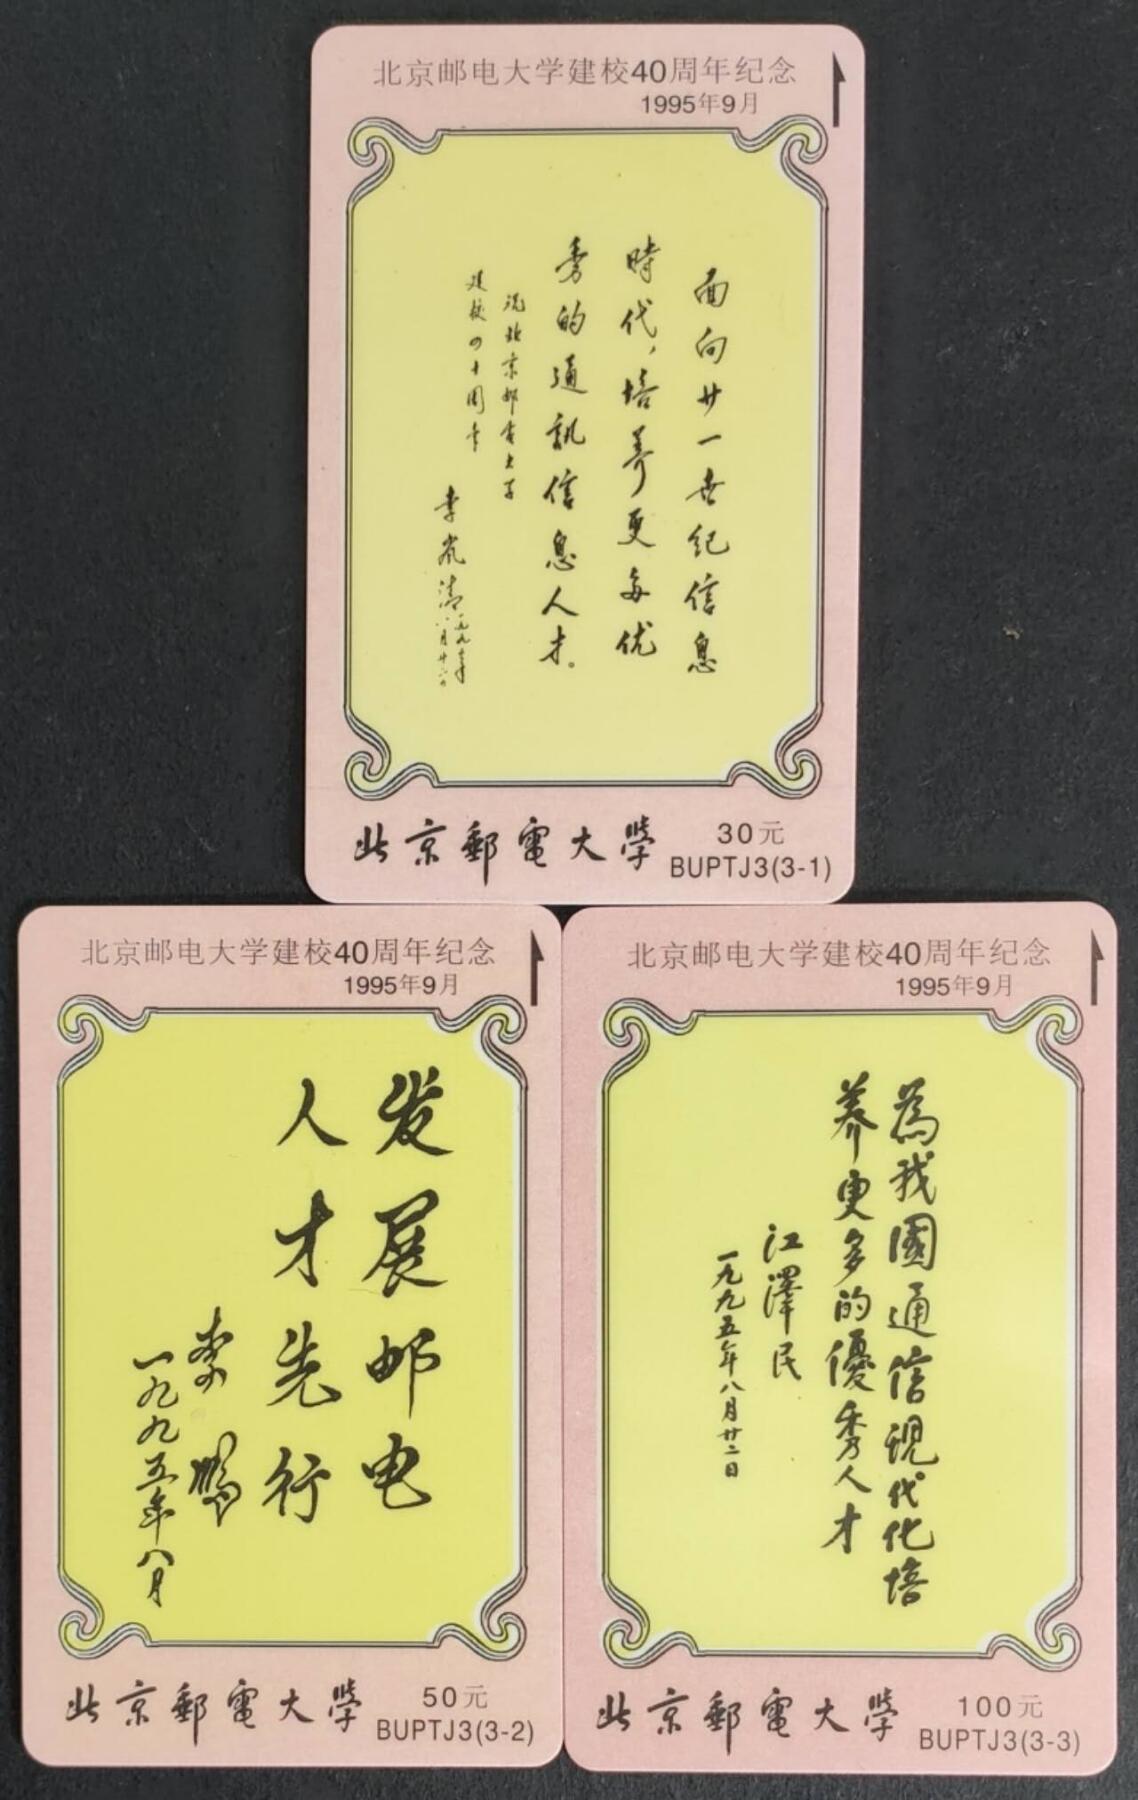 北京邮电大学建校40周年纪念
1995年9月
面向廿一世纪信息
時代，培养更多优
秀的通訊信息人才。
祝北京邮电大学
建校四十周年
李岚清
一九九五年
八月廿六日
北京郵電大學
30元
BUPTJ3(3-1)
北京邮电大学建校40周年纪念
1995年9月
发展邮电
人才先行
李鹏
一九九五年八月
北京郵電大學
50元
BUPTJ3(3-2)
北京邮电大学建校40周年纪念
1995年9月
為我國通信現代化培
养更多的優秀人才
江澤民
一九九五年八月廿二日
北京郵電大學
100元
BUPTJ3(3-3)